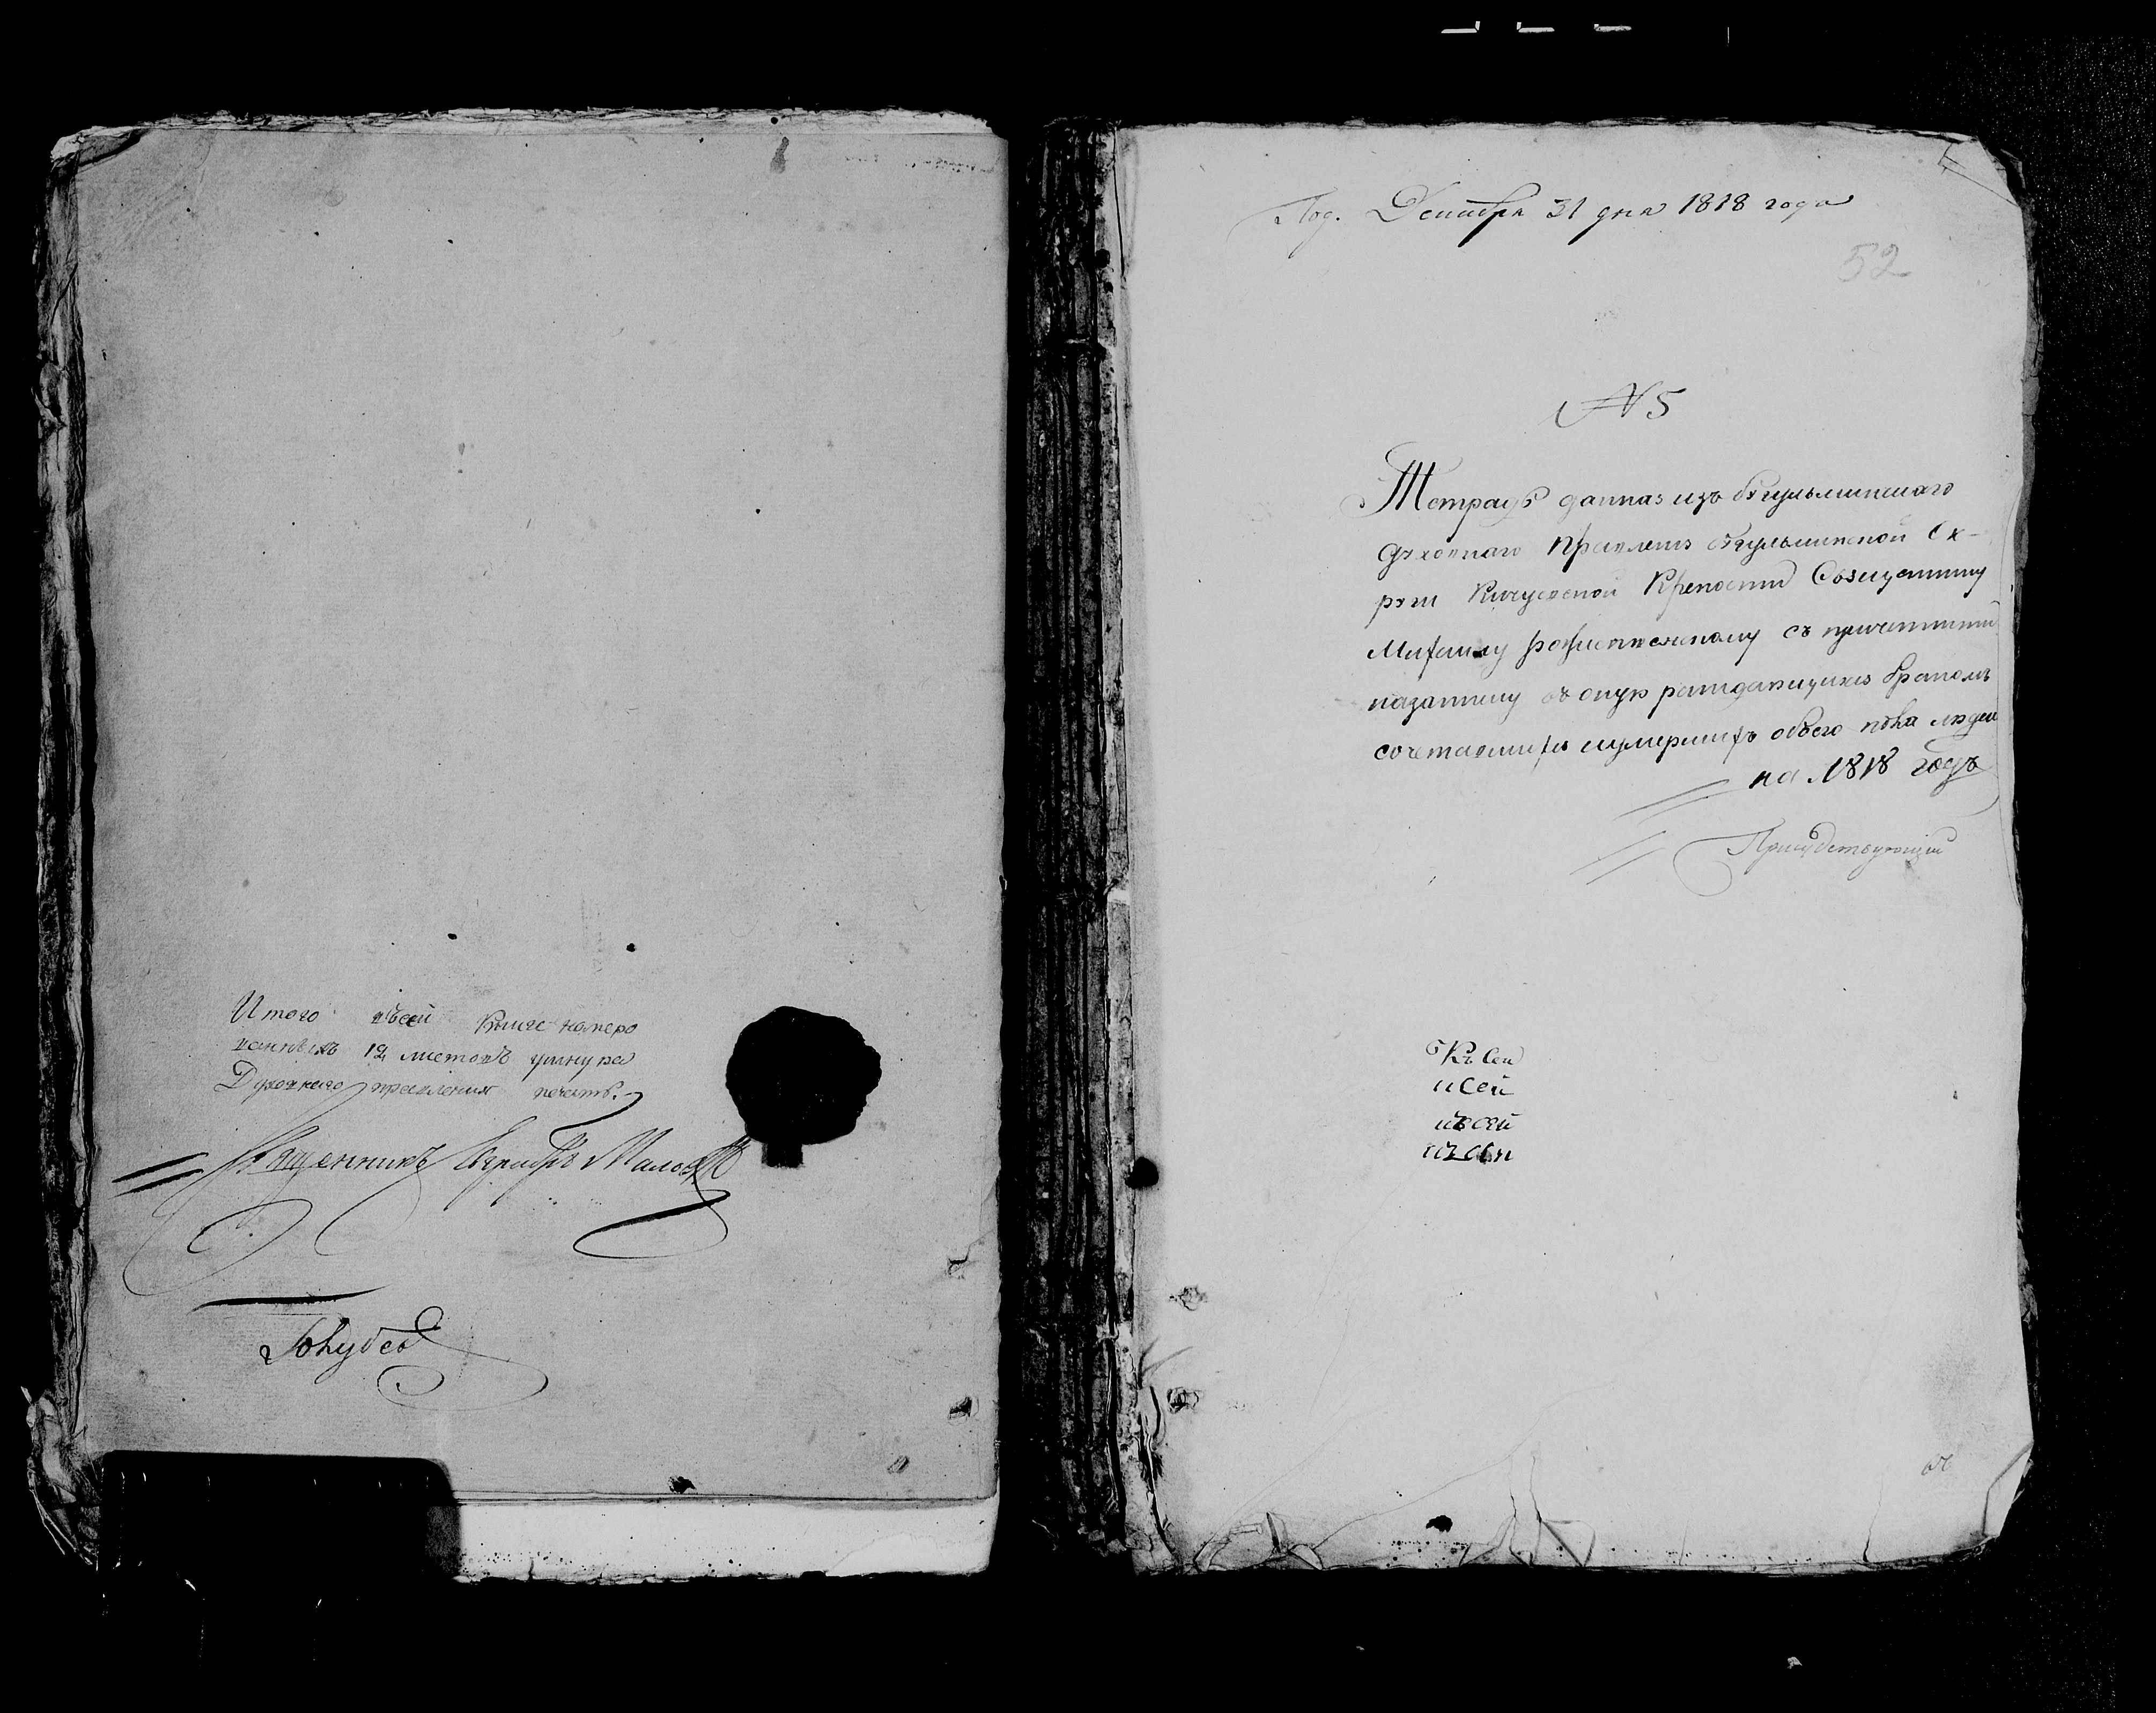 Итого въсей книге номеро
ванныхъ 12 листовъ ушнура
Духовнаго правления печать.
Священникъ Малов
Голубев
Под. Декабря 31 дня 1818 года
52
N 5
Тетрадь данная изъ бугульминскаго
духовнаго правления бугульминской ок-
руги Кичуевской Крепости Священнику
Михаилу съ причетники
на записку въ оную раждающихся бракомъ
сочетавшихся иумершихъ обоего пола людей
на 1818 годъ
Присудствующий
Къ Сей
и Сей
икъ сей
икъ сей